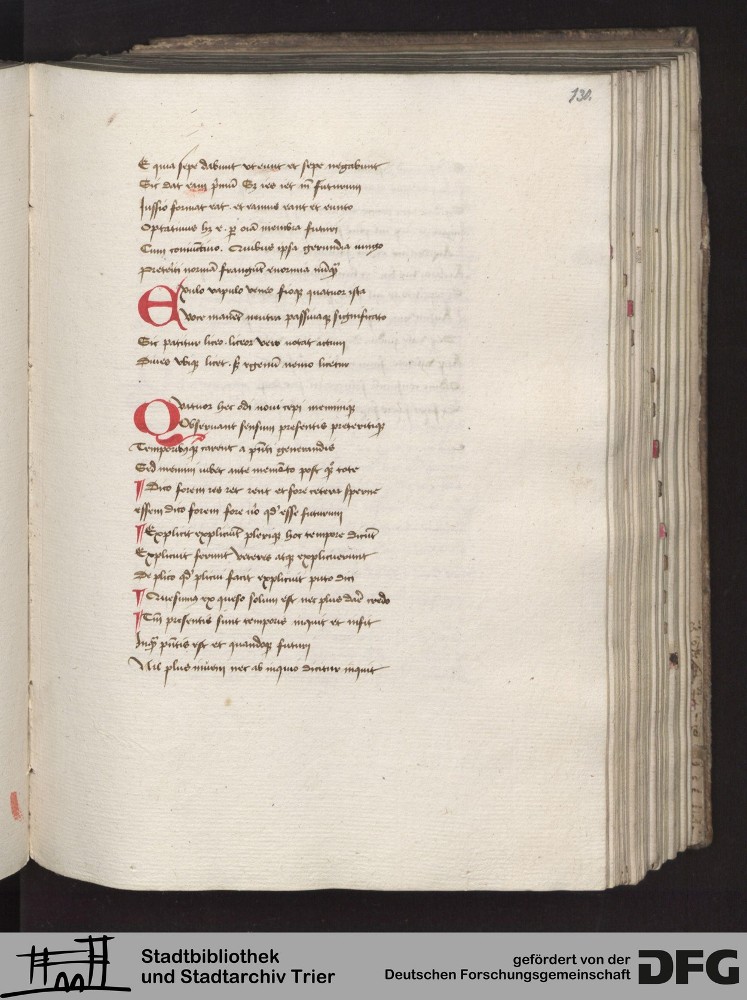 130.
E quia sepe dabunt ut eunt et sepe negabunt
Sic dat eam pͥmū Sꝫ ies iet in futurum
Jussio format eat et eamus eant et eunto
Optatiuus hꝫ e ꝑ oīa membra futuri
Cum coniūctiuo. Quibus ipsa gerundia iungo
preteriti normā frangūt enormia
Exulo vapulo veneo fioqꝫ quatuor ista
Voce manēt neutra passiuaqꝫ significato
Sic patitur liceo. liceor vero notat actum
Diues vbiqꝫ licet. sꝫ egenū nemo licetur
Quatuor hec odi noui cepi meminiqꝫ
Obseruant sensum presentis preteritiqꝫ
Temporibꝫqꝫ carent a pn̄ti generandis
Sed memini iubet ante memēto post tote
Dico forem res ret rent et fore cetera sperne
essem dico forem fore vͦ qd' esse futurum
Explicit expliciūt pleriqꝫ hoc tempore dicūt
Explicuit ferunt veteres atqꝫ explicuerunt
De plico qd' plicui facit explicuit puto dici
Quesumus ex queso solum est nec plus dare credo
Tm̄ presentis sunt temporis inquit et infit
Inqͣꝫ pn̄tis est et quandoqꝫ futuri
Nil plus inueni nec ab inquio dicitur inquit
Stadtbibliothek
und Stadtarchiv Trier
gefördert von der
Deutschen Forschungsgemeinschaft
DFG